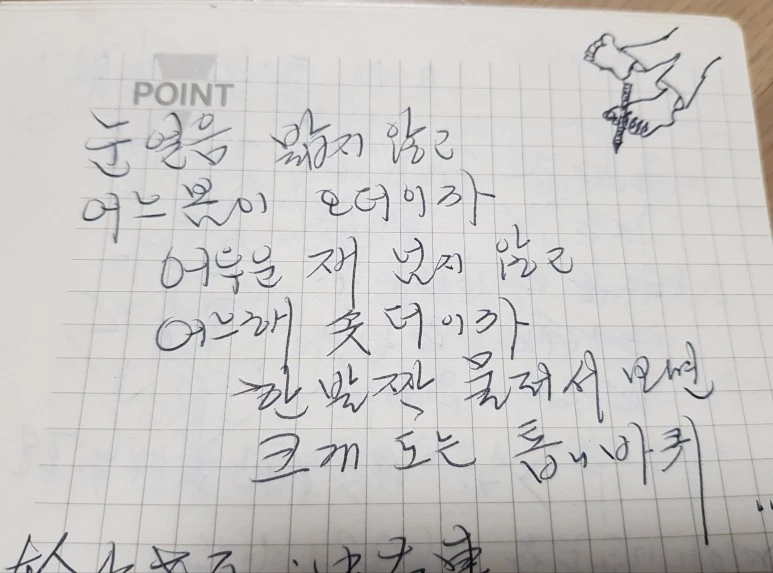 POINT
눈 얼음 밟지 않고
어느 봄이 오더이까
어두운 재 넘지 않고
어느 해 솟더이까
한 발짝 물러서 보면
크게 도는 톱니바퀴